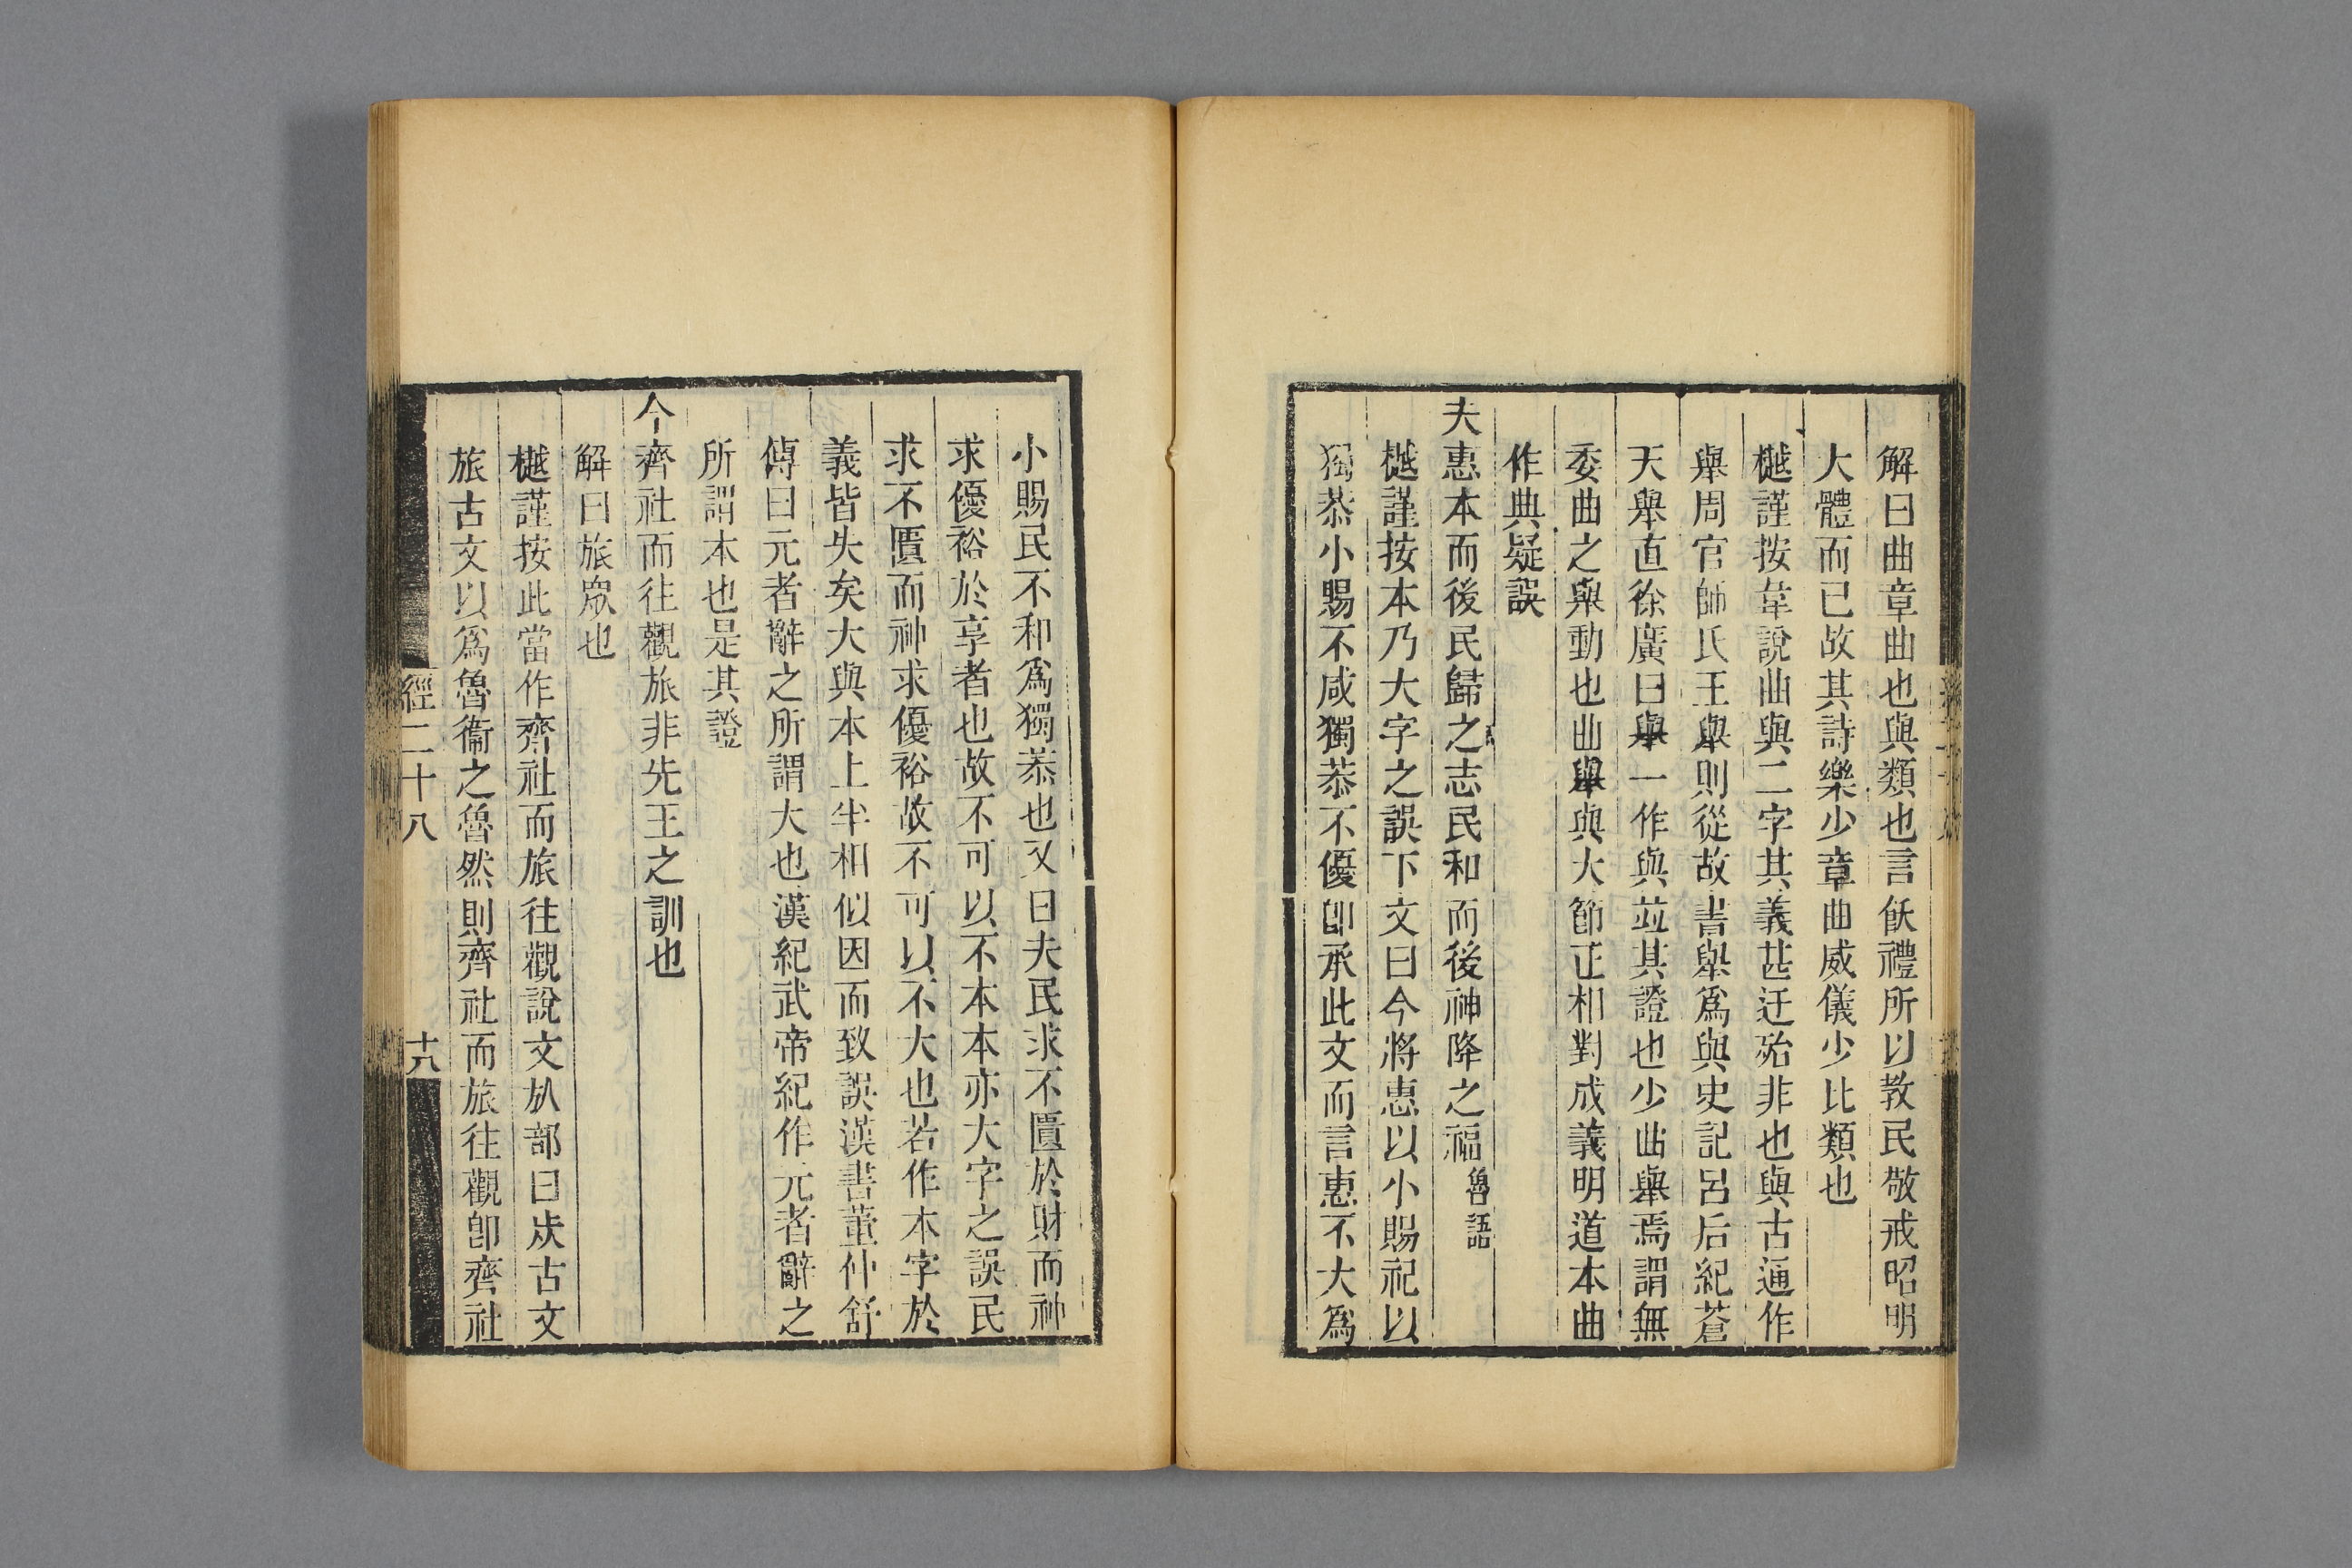 解曰曲章曲也與類也言飫禮所以教民敬戒昭明
大體而已故其詩樂少章曲威儀少比類也
樾謹按韋說曲與二字其義甚迂殆非也與古通作
舉周官師氏王舉則從故書舉爲與史記呂后紀蒼
天舉直徐廣曰舉一作與竝其證也少曲舉焉謂無
委曲之舉動也曲舉與大節正相對成義明道本曲
作典疑誤
夫惠本而後民歸之志民和而後神降之福魯語
樾謹按本乃大字之誤下文曰今將惠以小賜祀以
獨恭小賜不咸獨恭不優卽承此文而言惠不大爲
小賜民不和爲獨恭也又曰夫民求不匱於財而神
求優裕於享者也故不可以不本本亦大字之誤民
求不匱而神求優裕故不可以不大也若作本字於
義皆失矣大與本上半相似因而致誤漢書董仲舒
傳曰元者辭之所謂大也漢紀武帝紀作元者辭之
所謂本也是其證
今齊社而往觀旅非先王之訓也
解曰旅眾也
樾謹按此當作齊社而旅往觀說文㫃部曰㞺古文
旅古文以爲魯衞之魯然則齊社而旅往觀卽齊社
經二十八
十八